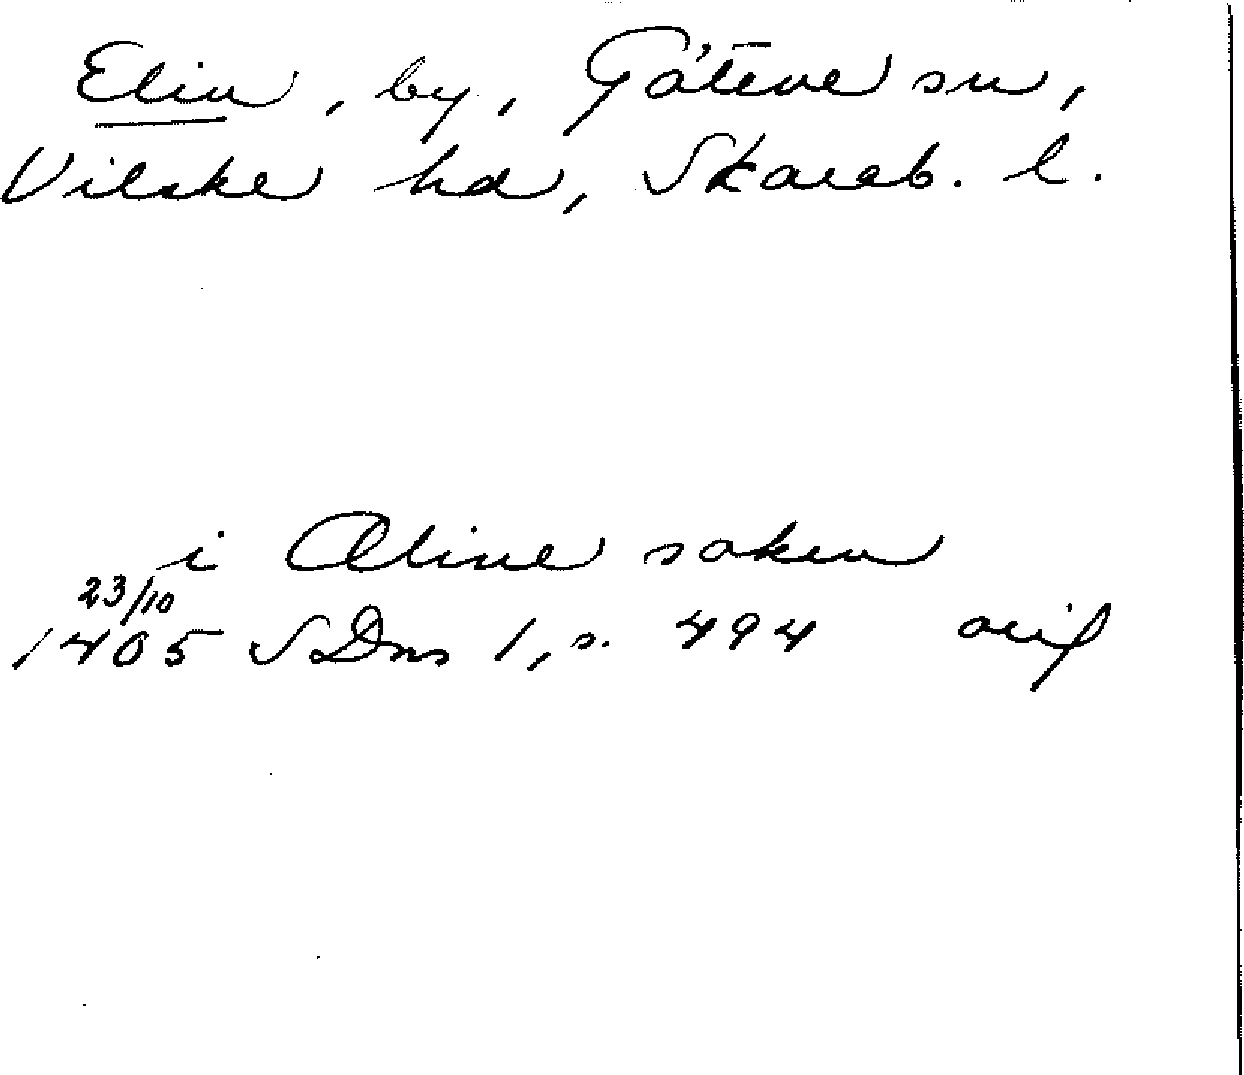 Elin, by, Göteve sn,
Vilske hd, Skarab. l.
i Æline soken
23/10
1405 SDns 1, s. 494 orig